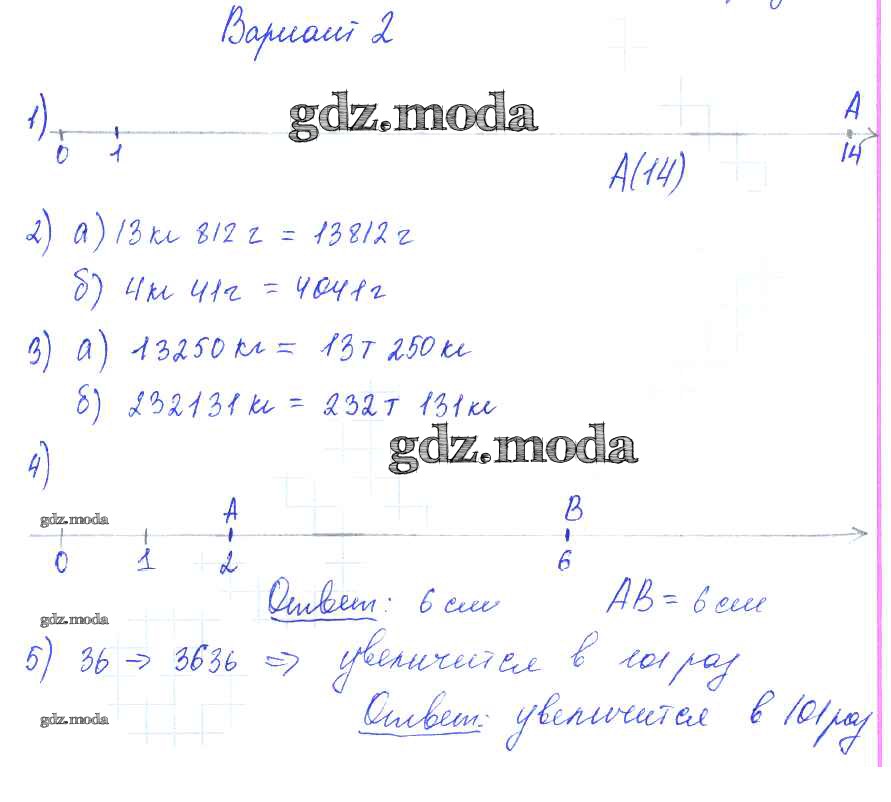 Вариант 2
gdz.moda
1)
A
0 1 14
A(14)
2) а) 13кг 812 г = 13812 г
б) 4кг 41г = 4041г
3) а) 13250 кг = 13т 250кг
б) 232131 кг = 232т 131кг
gdz.moda
4)
gdz.moda
A B
0 1 2 6
Ответ: 6 см AB = 6 см
gdz.moda
5) 36 → 3636 => увеличится в 101 раз
gdz.moda
Ответ: увеличится в 101 раз